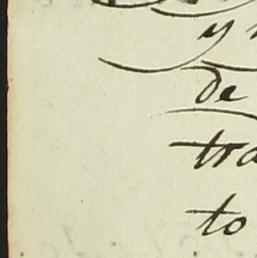 y
de
tra
to